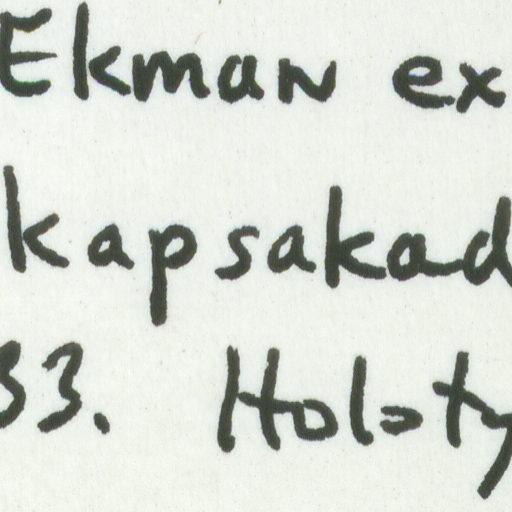 Ekman ex
kapsakad
33. Holoty